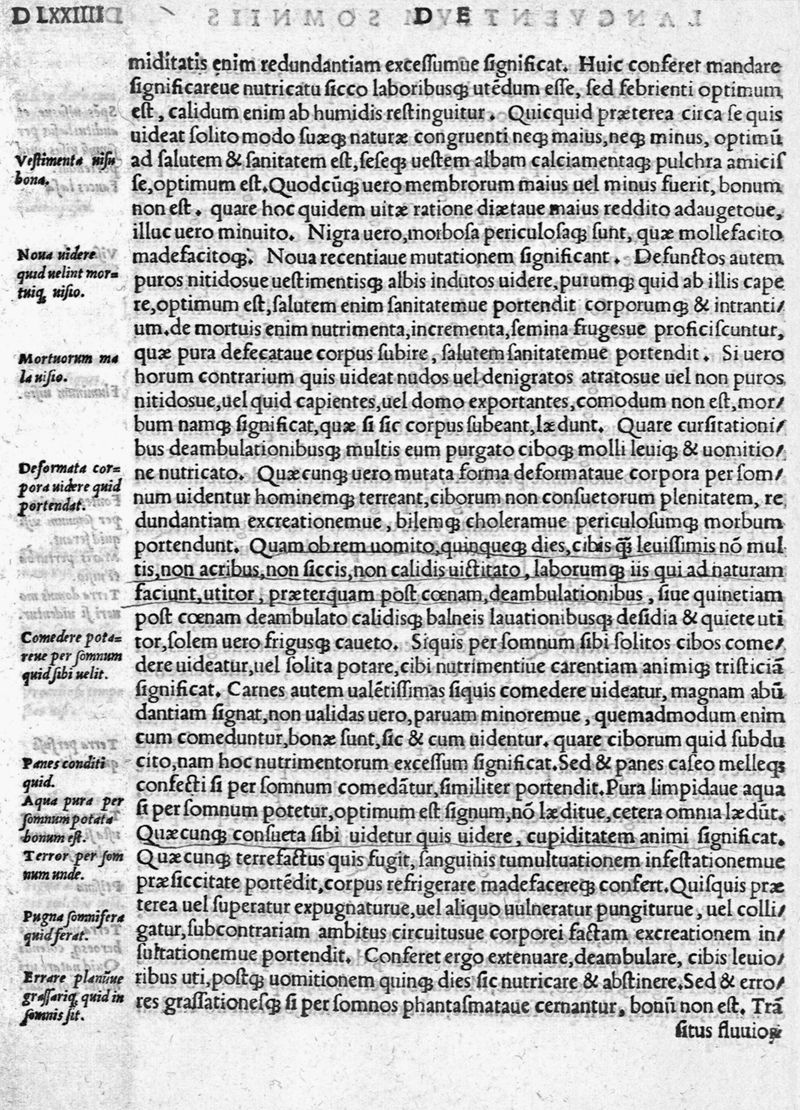 D LXXIIII D E
miditatis enim redundantiam exceſſumue ſignificat. Huic conferet mandare
ſignificareue nutricatu ſicco laboribusq́ utēdum eſſe, ſed febrienti optimum
eſt, calidum enim ab humidis reſtinguitur. Quicquid præterea circa ſe quis
uideat ſolito modo ſuæq́ naturæ congruenti neq́ maius, neq́ minus, optimū
Veſtimenta uiſu
bona.
ad ſalutem & ſanitatem eſt, ſeſeq́ ueſtem albam calciamentaq́ pulchra amiciſ
ſe, optimum eſt. Quodcūq́ uero membrorum maius uel minus fuerit, bonum
non eſt. quare hoc quidem uitæ ratione diætaue maius reddito adaugetoue,
illuc uero minuito. Nigra uero, morboſa periculoſaq́ ſunt, quæ mollefacito
Noua uidere
quid uelint mor=
tuiq́ uiſio.
madefacitoq́. Noua recentiaue mutationem ſignificant. Defunctos autem
puros nitidosue ueſtimentisq́ albis indutos uidere, purumq́ quid ab illis cape
re, optimum eſt, ſalutem enim ſanitatemue portendit corporumq́ & intranti/
um. de mortuis enim nutrimenta, incrementa, ſemina frugesue proficiſcuntur,
Mortuorum ma
la uiſio.
quæ pura defecataue corpus ſubire, ſalutem ſanitatemue portendit. Si uero
horum contrarium quis uideat nudos uel denigratos atratosue uel non puros
nitidosue, uel quid capientes, uel domo exportantes, comodum non eſt, mor/
bum namq́ ſignificat, quæ ſi ſic corpus ſubeant, lædunt. Quare curſitationi/
bus deambulationibusq́ multis eum purgato ciboq́ molli leuiq́ & uomitio/
Deformata cor=
pora uidere quid
portendat.
ne nutricato. Quæcunq́ uero mutata forma deformataue corpora per ſom/
num uidentur hominemq́ terreant, ciborum non conſuetorum plenitatem, re
dundantiam excreationemue, bilemq́ choleramue periculoſumq́ morbum
portendunt. Quam ob rem uomito, quinqueq́ dies, cibis q̃ȝ leuiſſimis nō mul
tis, non acribus, non ſiccis, non calidis uictitato, laborumq́ iis qui ad naturam
faciunt, utitor, præterquam poſt cœnam, deambulationibus, ſiue quinetiam
poſt cœnam deambulato calidisq́ balneis lauationibusq́ deſidia & quiete uti
Comedere pota=
reue per ſomnum
quid ſibi uelit.
tor, ſolem uero frigusq́ caueto. Siquis per ſomnum ſibi ſolitos cibos come/
dere uideatur, uel ſolita potare, cibi nutrimentiue carentiam animiq́ triſticiā
ſignificat. Carnes autem ualētiſſimas ſiquis comedere uideatur, magnam abū
dantiam ſignat, non ualidas uero, paruam minoremue, quemadmodum enim
cum comeduntur, bonæ ſunt, ſic & cum uidentur. quare ciborum quid ſubdu
Panes conditi
quid.
cito, nam hoc nutrimentorum exceſſum ſignificat. Sed & panes caſeo melleq́
confecti ſi per ſomnum comedātur, ſimiliter portendit. Pura limpidaue aqua
Aqua pura per
ſomnum potata
bonum eſt.
ſi per ſomnum potetur, optimum eſt ſignum, nō læditue, cetera omnia lædūt.
Quæcunq́ conſueta ſibi uidetur quis uidere, cupiditatem animi ſignificat.
Terror per ſom
num unde.
Quæcunq́ terrefactus quis fugit, ſanguinis tumultuationem infeſtationemue
præ ſiccitate portēdit, corpus refrigerare madefacereq́ confert. Quiſquis præ
terea uel ſuperatur expugnaturue, uel aliquo uulneratur pungiturue, uel colli/
Pugna ſomnifera
quid ferat.
gatur, ſubcontrariam ambitus circuitusue corporei factam excreationem in/
ſultationemue portendit. Conferet ergo extenuare, deambulare, cibis leuio/
Errare planūue
graſſariq́ quid in
ſomnis ſit.
ribus uti, poſtq́ uomitionem quinq́ dies ſic nutricare & abſtinere. Sed & erro/
res graſſationeſq́ ſi per ſomnos phantaſmataue cernantur, bonū non eſt. Trā
ſitus fluuioȝ